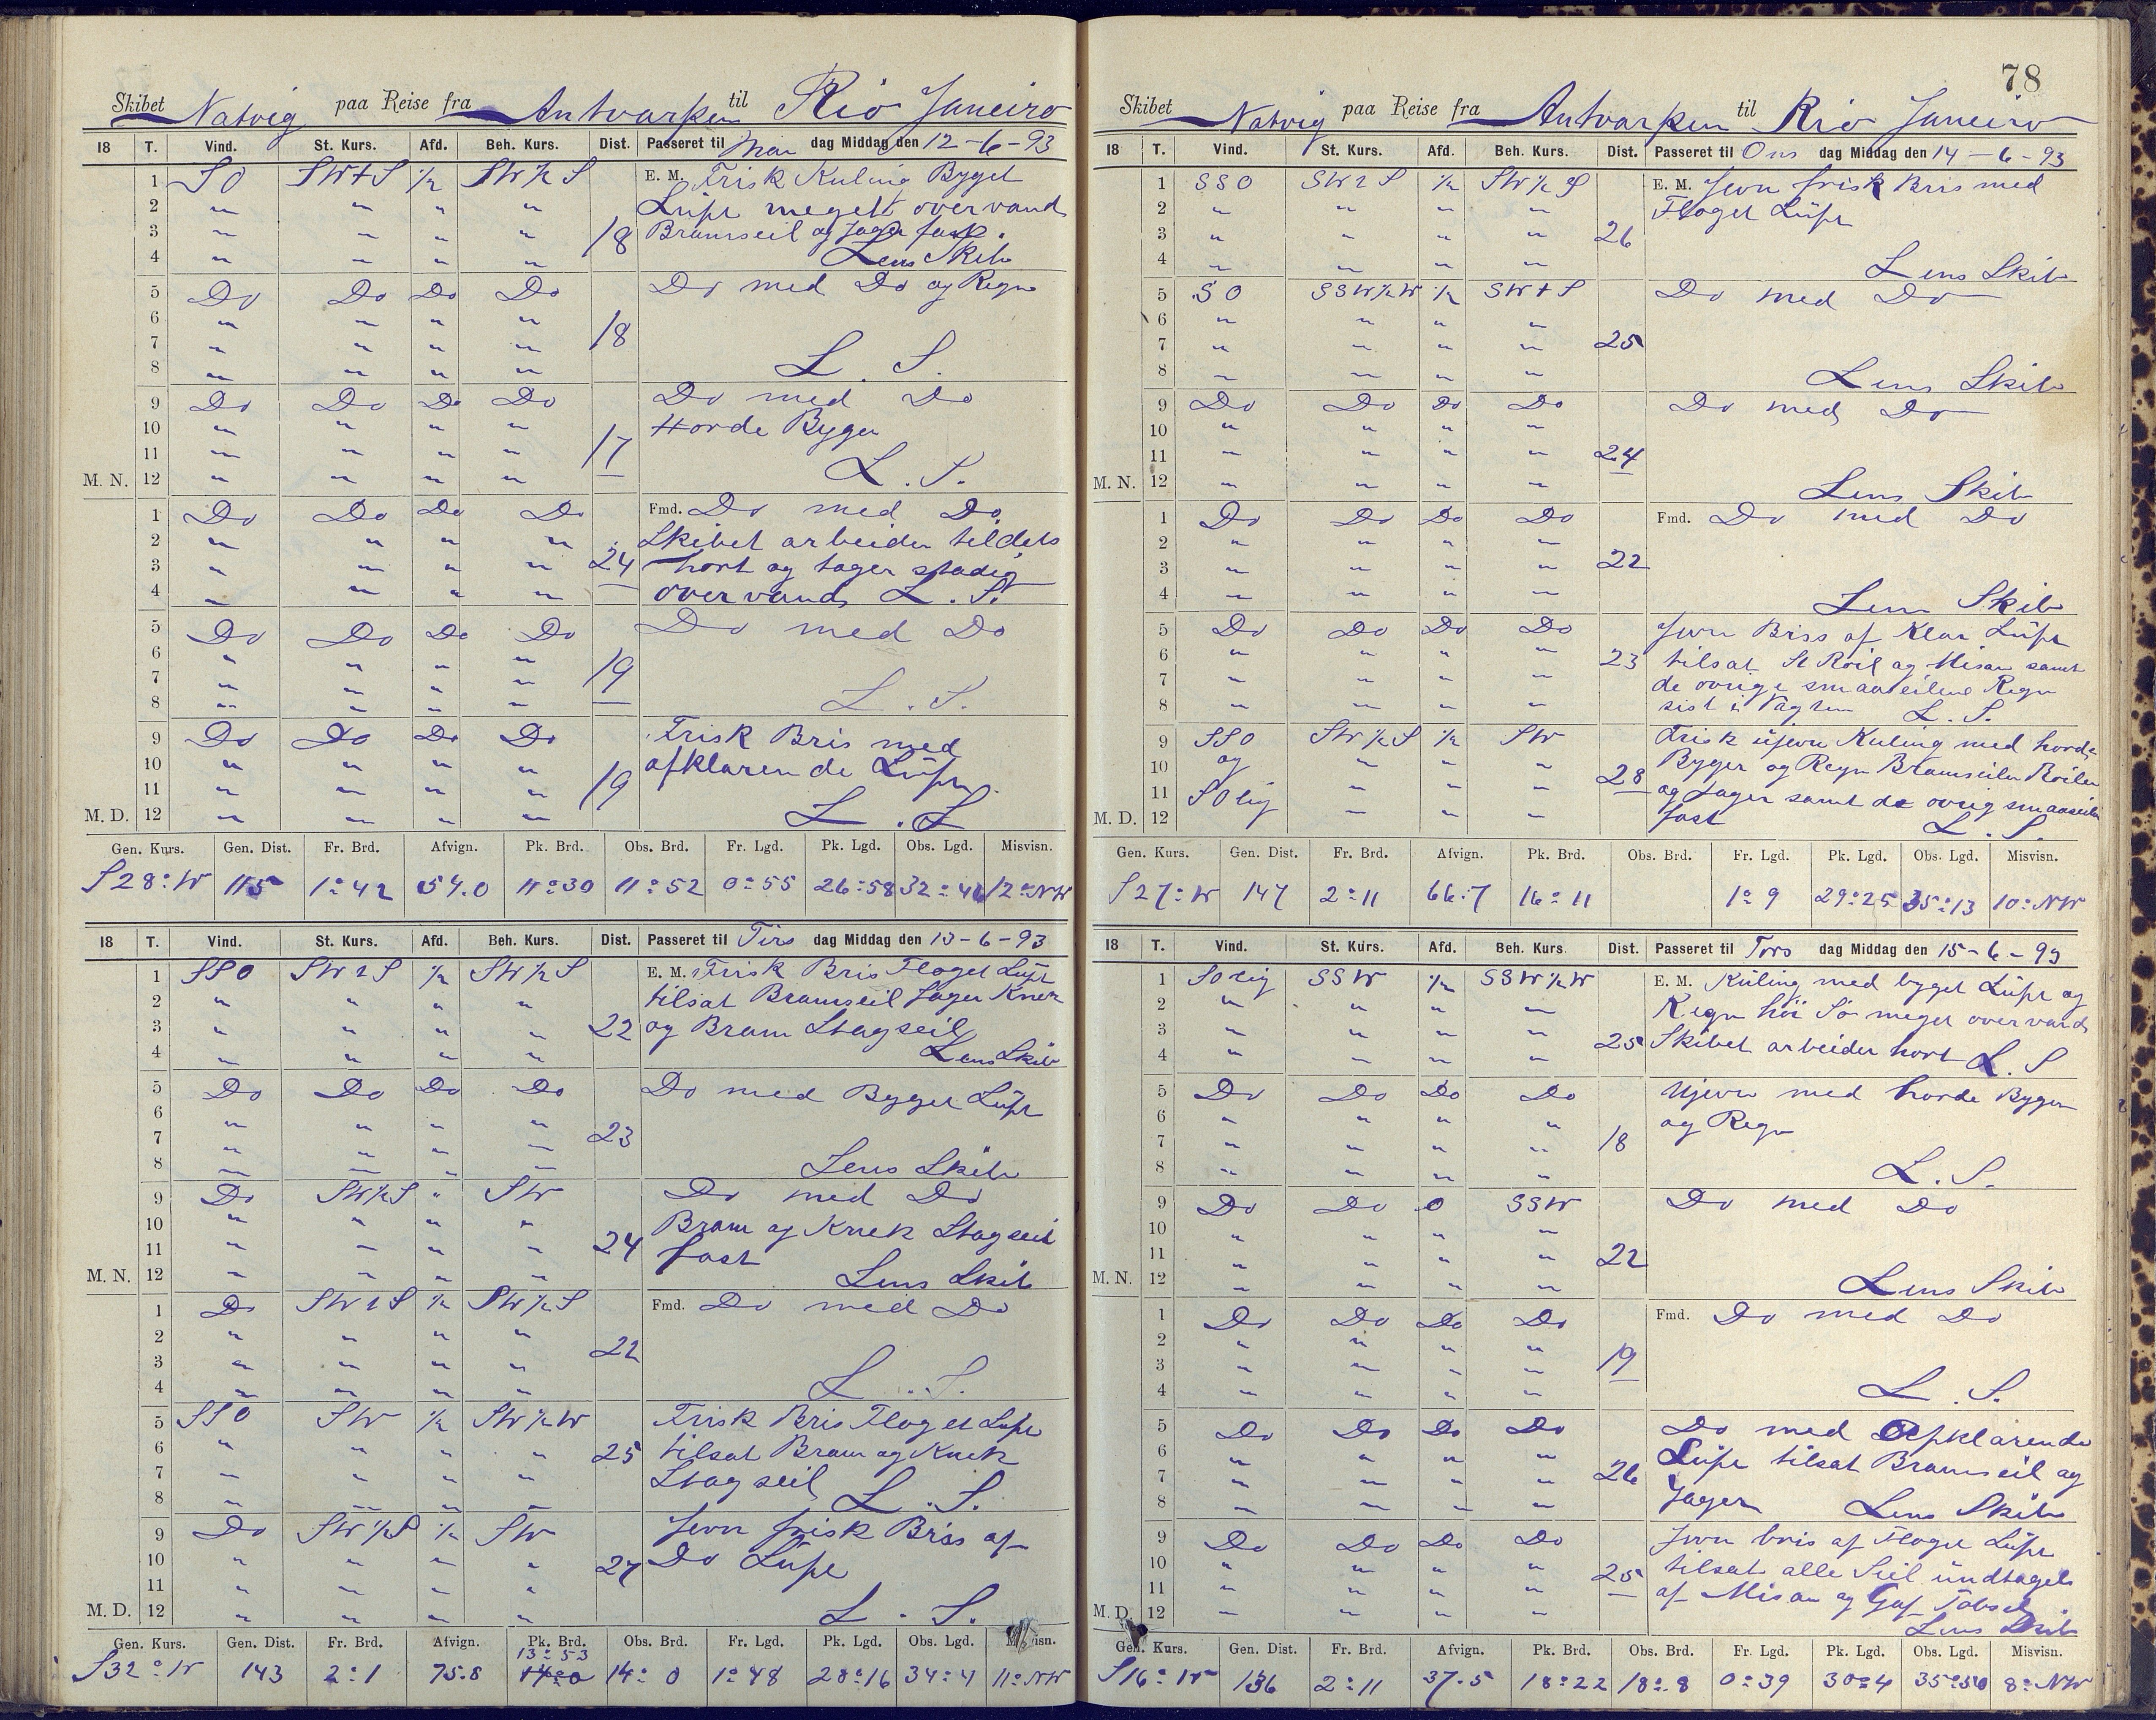 Skibet Natvig paa Reise fra Antvarpen til Rio Janeiro
18 T. Vind. St. Kurs. Afd. Beh. Kurs. Dist. Passeret til Man dag Middag den 12-6-93
1 SO SWtS ½ SW½S E. M. Frisk Kuling Byget
2 " " " " Lüft meget overvand
3 " " " " 18 Bramseil og Jager fast.
4 " " " " Lens Skib
5 Do Do Do Do Do med Do og Regn
6 " " " "
7 " " " " 18
8 " " " " L. S.
9 Do Do Do Do Do med Do
10 " " " " Horde Byger
11 " " " " 17
M. N. 12 " " " " L. S.
1 Do Do Do Do Fmd. Do med Do
2 " " " " Skibet arbeider tildels
3 " " " " 24 hort og tager stadig
4 " " " " overvand L. S.
5 Do Do Do Do Do med Do
6 " " " "
7 " " " " 19
8 " " " " L. S.
9 Do Do Do Do Frisk Bris med
10 " " " " afklarende Lüft
11 " " " " 19
M. D. 12 " " " " L. S.
Gen. Kurs. Gen. Dist. Fr. Brd. Afvign. Pk. Brd. Obs. Brd. Fr. Lgd. Pk. Lgd. Obs. Lgd. Misvisn.
S28°W 115 1°42 54.0 11°30 11°52 0°55 26°58 32°46 12°NW
18 T. Vind. St. Kurs. Afd. Beh. Kurs. Dist. Passeret til Tirs dag Middag den 13-6-93
1 SSO SWtS ½ SW½S E. M. Frisk Bris Floget Lüft
2 " " " " tilsat Bramseil Jager Knek
3 " " " " 22 og Bram Stagseil
4 " " " " Lens Skib
5 Do Do Do Do Do med Byget Lüft
6 " " " "
7 " " " " 23
8 " " " " Lens Skib
9 Do SW½S " SW Do med Do
10 " " " " Bram og Knek Stagseil
11 " " " " 24 fast
M. N. 12 " " " " Lens Skib
1 Do SWtS ½ SW½S Fmd. Do med Do
2 " " " "
3 " " " " 22
4 " " " " L. S.
5 SSO SW ½ SW½W Frisk Bris Floget Lüft
6 " " " " 25 tilsat Bram og Knek
7 " " " " Stagseil L. S.
8 " " " "
9 Do SW½S ½ SW Jevn frisk Bris af
10 " " " " 27 Do Lüft
11 " " " "
M. D. 12 " " " " L. S.
Gen. Kurs. Gen. Dist. Fr. Brd. Afvign. Pk. Brd. Obs. Brd. Fr. Lgd. Pk. Lgd. Obs. Lgd. Misvisn.
13°53
S32°W 143 2°1 75.8 14°0 14°0 1°48 28°16 34°4 11°NW
78
Skibet Natvig paa Reise fra Antvarpen til Rio Janeiro
18 T. Vind. St. Kurs. Afd. Beh. Kurs. Dist. Passeret til Ons dag Middag den 14-6-93
1 SSO SWtS ½ SW½S E. M. Jevn frisk Bris med
2 " " " " Floget Lüft
3 " " " " 26
4 " " " " Lens Skib
5 SO SSW½W ½ SWtS Do med Do
6 " " " "
7 " " " " 25
8 " " " " Lens Skib
9 Do Do Do Do Do med Do
10 " " " "
11 " " " " 24
M. N. 12 " " " " Lens Skib
1 Do Do Do Do Fmd. Do med Do
2 " " " " 22
3 " " " "
4 " " " " Lens Skib
5 Do Do Do Do Jevn Bris af Klar Lüft
6 " " " " 23 tilsat St Röil og Misan samt
7 " " " " de övrige smaaseilene Regn
8 " " " " sist i Vagten L. S.
9 SSO SW½S ½ SW Frisk üjevn Kuling med horde
10 og " " " Byger og Regn Bramseilen Röilen
11 SOlig " " " 28 og Jager samt de övrig smaaseilen
M. D. 12 " " " fast L. S.
Gen. Kurs. Gen. Dist. Fr. Brd. Afvign. Pk. Brd. Obs. Brd. Fr. Lgd. Pk. Lgd. Obs. Lgd. Misvisn.
S27°W 147 2°11 66.7 16°11 1°9 29°25 35°13 10°NW
18 T. Vind. St. Kurs. Afd. Beh. Kurs Dist. Passeret til Tors dag Middag den 15-6-93
1 SOlig SSW ½ SSW½W E. M. Küling med byget Lüft og
2 " " " " Regn höi Sö meget overvand
3 " " " " 25 Skibet arbeider hort L. S
4 " " " "
5 Do Do Do Do Ujevn med horde Byger
6 " " " " og Regn
7 " " " " 18
8 " " " " L. S.
9 Do Do 0 SSW Do med Do
10 " " " "
11 " " " " 22
M. N. 12 " " " " Lens Skib
1 Do Do Do Do Fmd. Do med Do
2 " " " "
3 " " " " 19
4 " " " " L. S.
5 Do Do Do Do Do med Opklarende
6 " " " " Lüft tilsat Bramseil og
7 " " " " 26 Jager
8 " " " " Lens Skib
9 Do Do Do Do Jevn bris af Floget Lüft
10 " " " " 25 tilsat alle Seil undtagels
11 " " " " af Misan og Gaf Tobseil
M. D. 12 " " " " Lens Skib
Gen. Kurs. Gen. Dist. Fr. Brd. Afvign. Pk. Brd. Obs. Brd. Fr. Lgd. Pk. Lgd. Obs. Lgd. Misvisn.
S16°W 136 2°11 37.5 18°22 18°8 0°39 30°4 35°50 8°NW